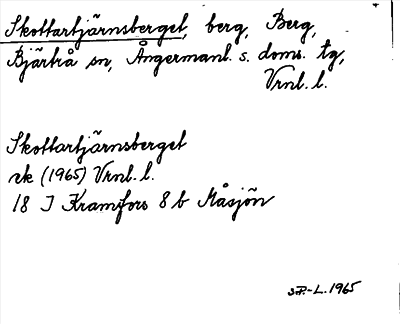 Skottartjärnsberget, berg, Berg,
Bjärtrå sn, Ångermanl. s. doms. tg,
Vrnl. l.
Skottartjärnsberget
ek (1965) Vrnl. l.
18 I Kramfors 8 b Måsjön
SP.-L. 1965